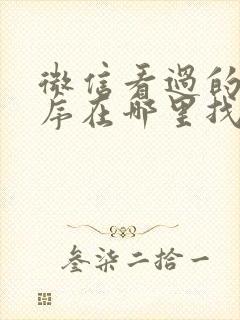 微信看過的
序在哪里找
叁柒二拾一